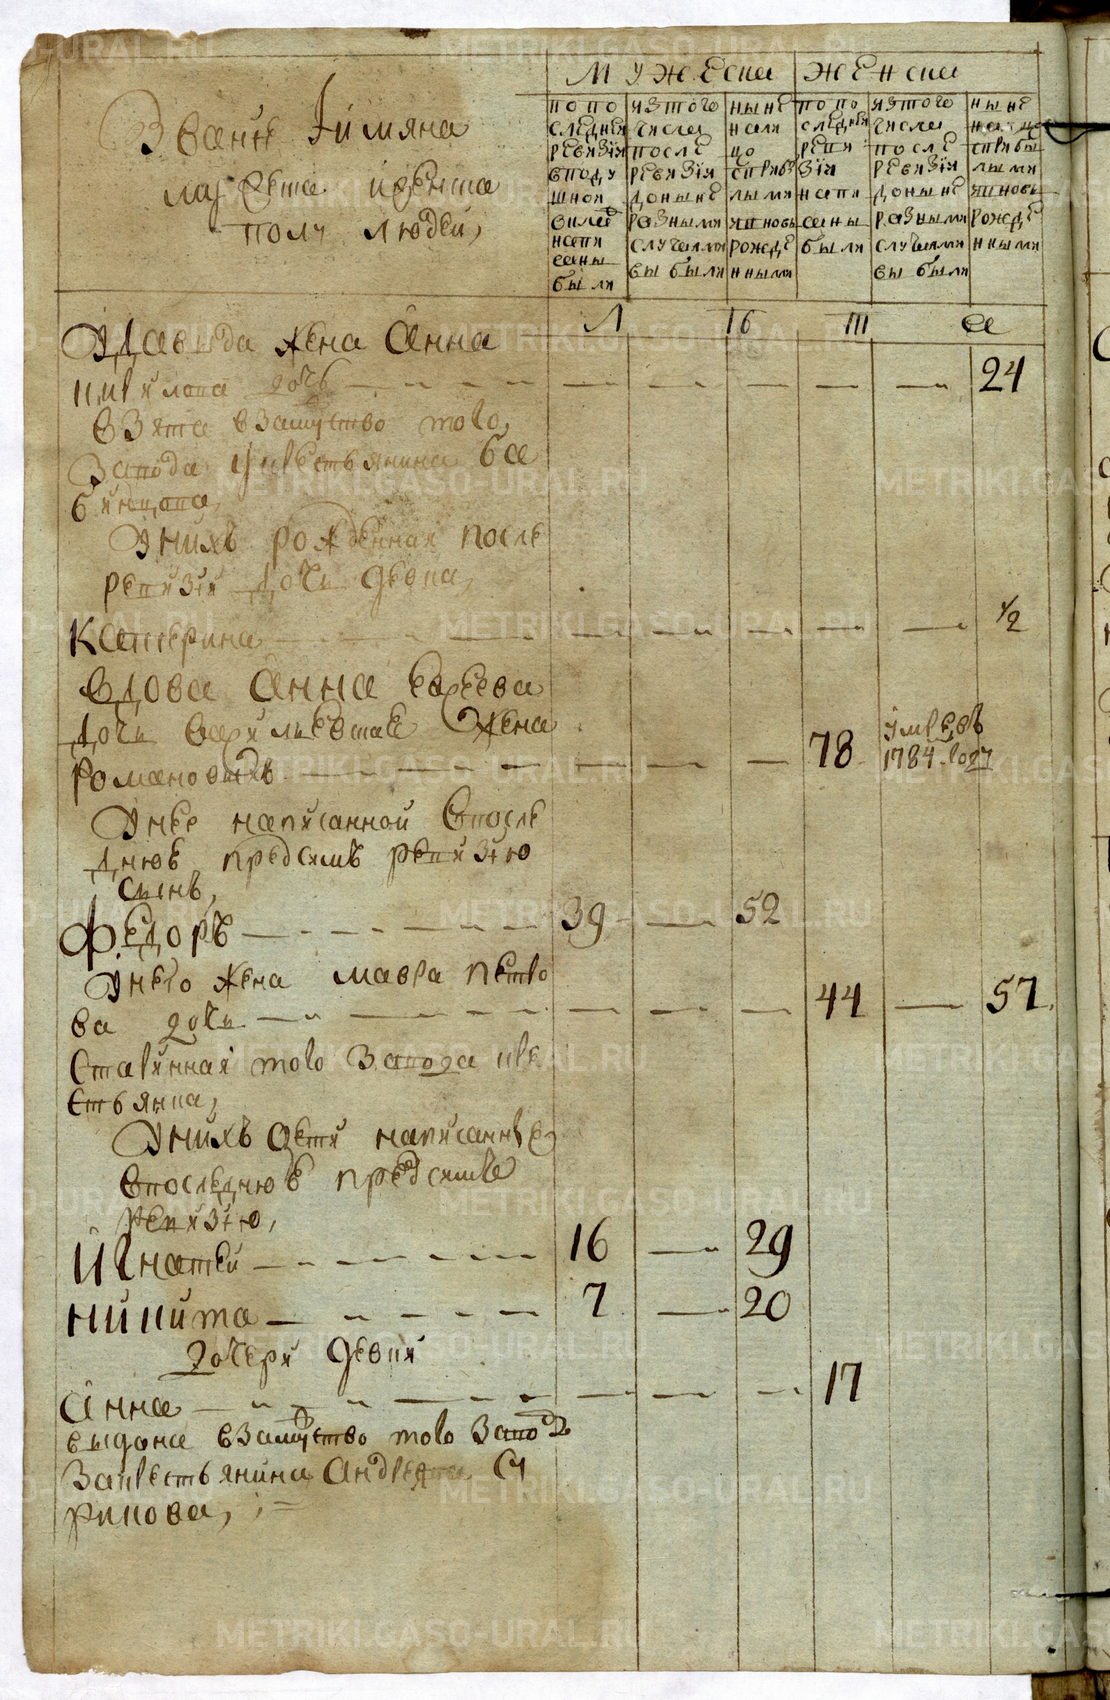 METRIKI.GASO-URAL.RU
Званіе Іимяна
мужеска иженска
полу людей,
мужеска
женска
попо следнея ревизія вподу шной оклад написаны были
изтого числа после ревизія доныне разными случаями выбыли
ныне нали цо сприбылыми ивновь рожденными
попо следнея ревизія написаны были
изтого числа после ревизія доныне разными случаями выбыли
ныне налицо сприбылыми ивновь рожденными
Л 16 Ш
УДавыда жена Анна
дочь 24
взята взамужство того
Завода крестьянина Ба
Унихъ рожденная после
ревизіи дочь девка,
Катерина 1/2
вдова Анна
дочь Васильевская Жена
Романовыхъ 78 умре въ 1784 году
Унее написанной впосле
днюю предсимъ ревизию
сынъ,
Федоръ 39 52
Унего жена мавра петро
ва дочь 44 57
Старинная того Завода кре
стьянка,
Унихъ дети написанные
впоследнюю предсимъ
ревизию,
Игнатей 16 29
Никита 7 20
дочери девки
Анна 17
выдана взамужство того Завода
Закрестьянина Андреяна Су
рикова,